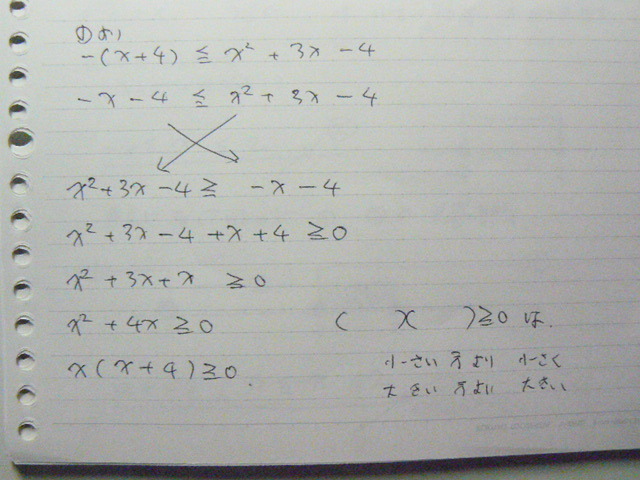 ①より
-(x+4) ≦ x² + 3x - 4
-x - 4 ≦ x² + 3x - 4
x² + 3x - 4 ≧ -x - 4
x² + 3x - 4 + x + 4 ≧ 0
x² + 3x + x ≧ 0
x² + 4x ≧ 0
( )( ) ≧ 0 は.
x(x+4) ≧ 0.
小さい方より 小さく
大きい方より 大きい